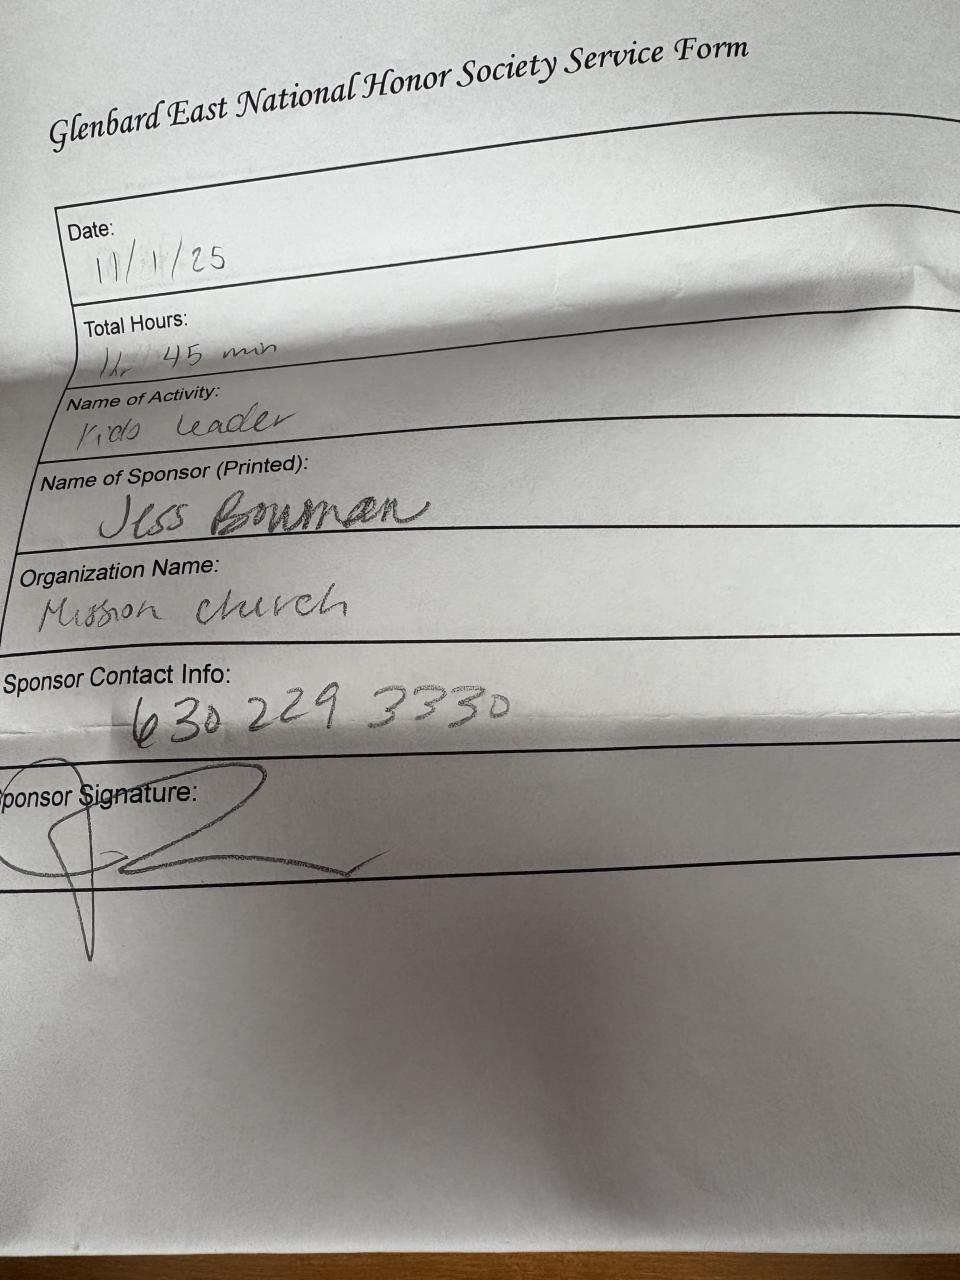 Glenbard East National Honor Society Service Form
Date:
11/1/25
Total Hours:
1hr 45 min
Name of Activity:
Kids leader
Name of Sponsor (Printed):
Jess Bowman
Organization Name:
Mission church
Sponsor Contact Info:
630 229 3330
ponsor Signature: